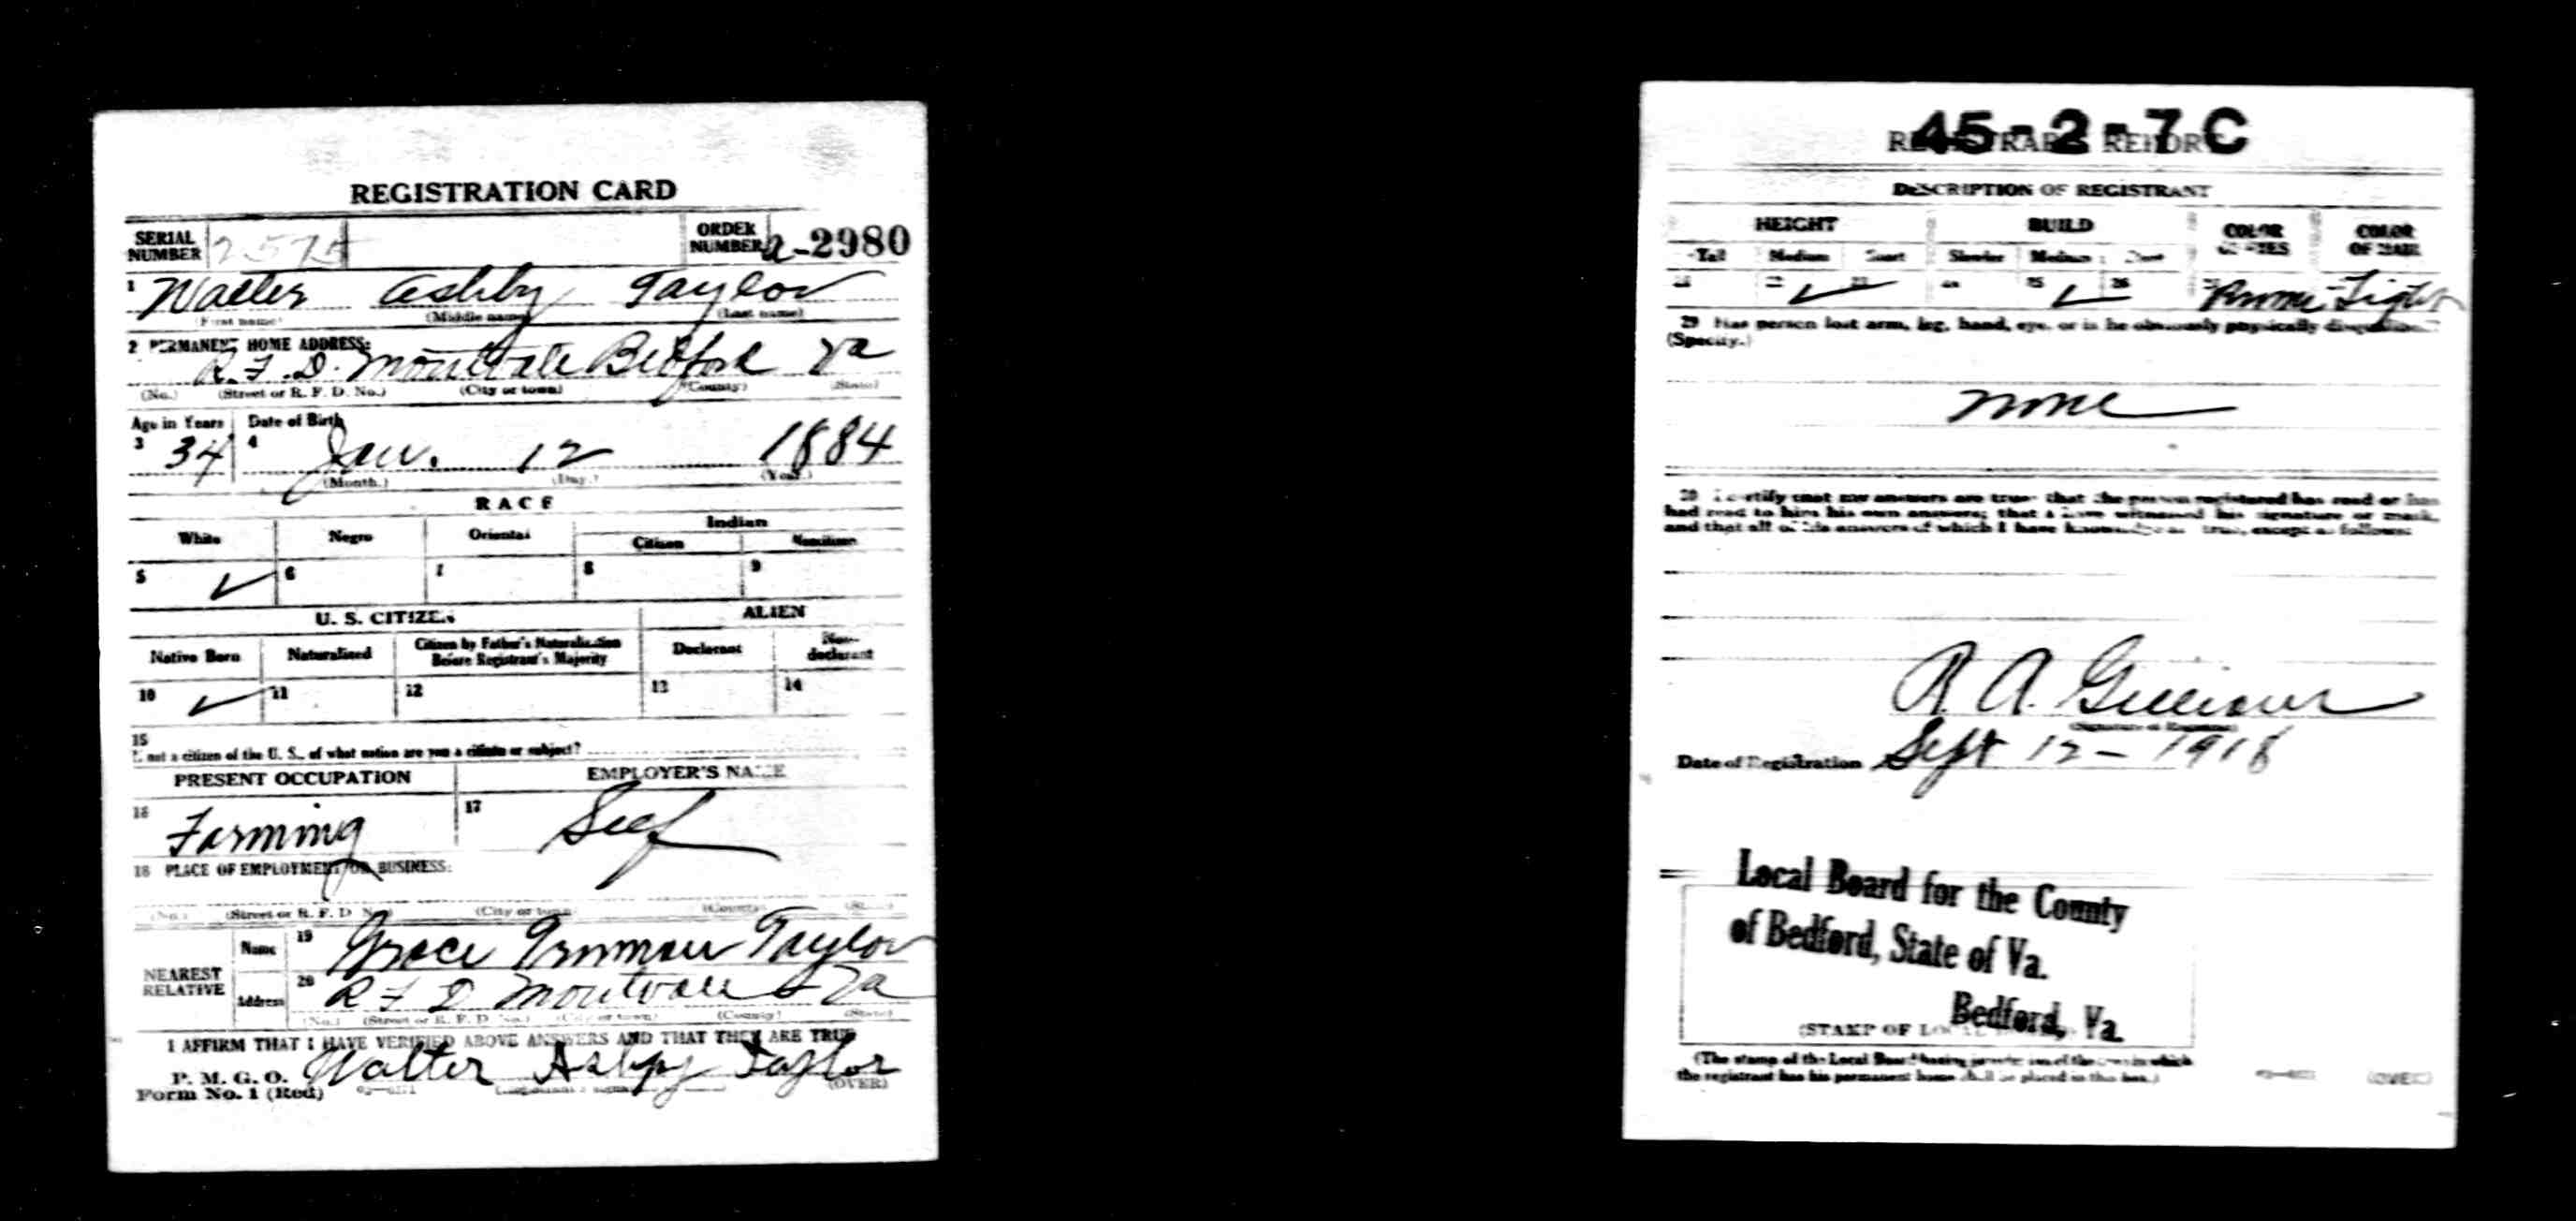 REGISTRATION CARD
SERIAL NUMBER 2575 ORDER NUMBER a-2980
1 Walter Ashby Taylor
(First name) (Middle name) (Last name)
2 PERMANENT HOME ADDRESS:
R.F.D. Montvale Bedford Va
(No.) (Street or R. F. D. No.) (City or town) (County) (State)
Age in Years Date of Birth
3 34 4 Jan. 12 1884
(Month.) (Day.) (Year.)
RACE
White Negro Oriental Indian
Citizen Noncitizen
5 ✓ 6 7 8 9
U. S. CITIZEN ALIEN
Native Born Naturalized Citizen by Father's Naturalization Before Registrant's Majority Declarant Non-declarant
10 ✓ 11 12 13 14
15
If not a citizen of the U. S., of what nation are you a citizen or subject?
PRESENT OCCUPATION EMPLOYER'S NAME
16 Farming 17 Self
18 PLACE OF EMPLOYMENT OR BUSINESS:
(No.) (Street or R. F. D. No.) (City or town) (County) (State)
NEAREST RELATIVE
Name 19 Grace Taylor
Address 20 R F D Montvale Va
(No.) (Street or R. F. D. No.) (City or town) (County) (State)
I AFFIRM THAT I HAVE VERIFIED ABOVE ANSWERS AND THAT THEY ARE TRUE
P. M. G. O.
Form No. 1 (Red) Walter Ashby Taylor
(OVER)
45-2-7 C
REGISTRAR'S REPORT
DESCRIPTION OF REGISTRANT
HEIGHT BUILD COLOR OF EYES COLOR OF HAIR
Tall Medium Short Slender Medium Stout
21 22 ✓ 23 24 25 ✓ 26 27 Light
29 Has person lost arm, leg, hand, eye, or is he obviously physically disqualified?
(Specify.)
none
30 I certify that my answers are true; that the person registered has read or has
had read to him his own answers; that I have witnessed his signature or mark,
and that all of his answers of which I have knowledge are true, except as follows:
R. A.
(Signature of Registrar)
Date of Registration Sept 12 - 1918
Local Board for the County
of Bedford, State of Va.
Bedford, Va.
(STAMP OF LOCAL
(The stamp of the Local Board having jurisdiction of the area in which
the registrant has his permanent home shall be placed in this box.)
(OVER)